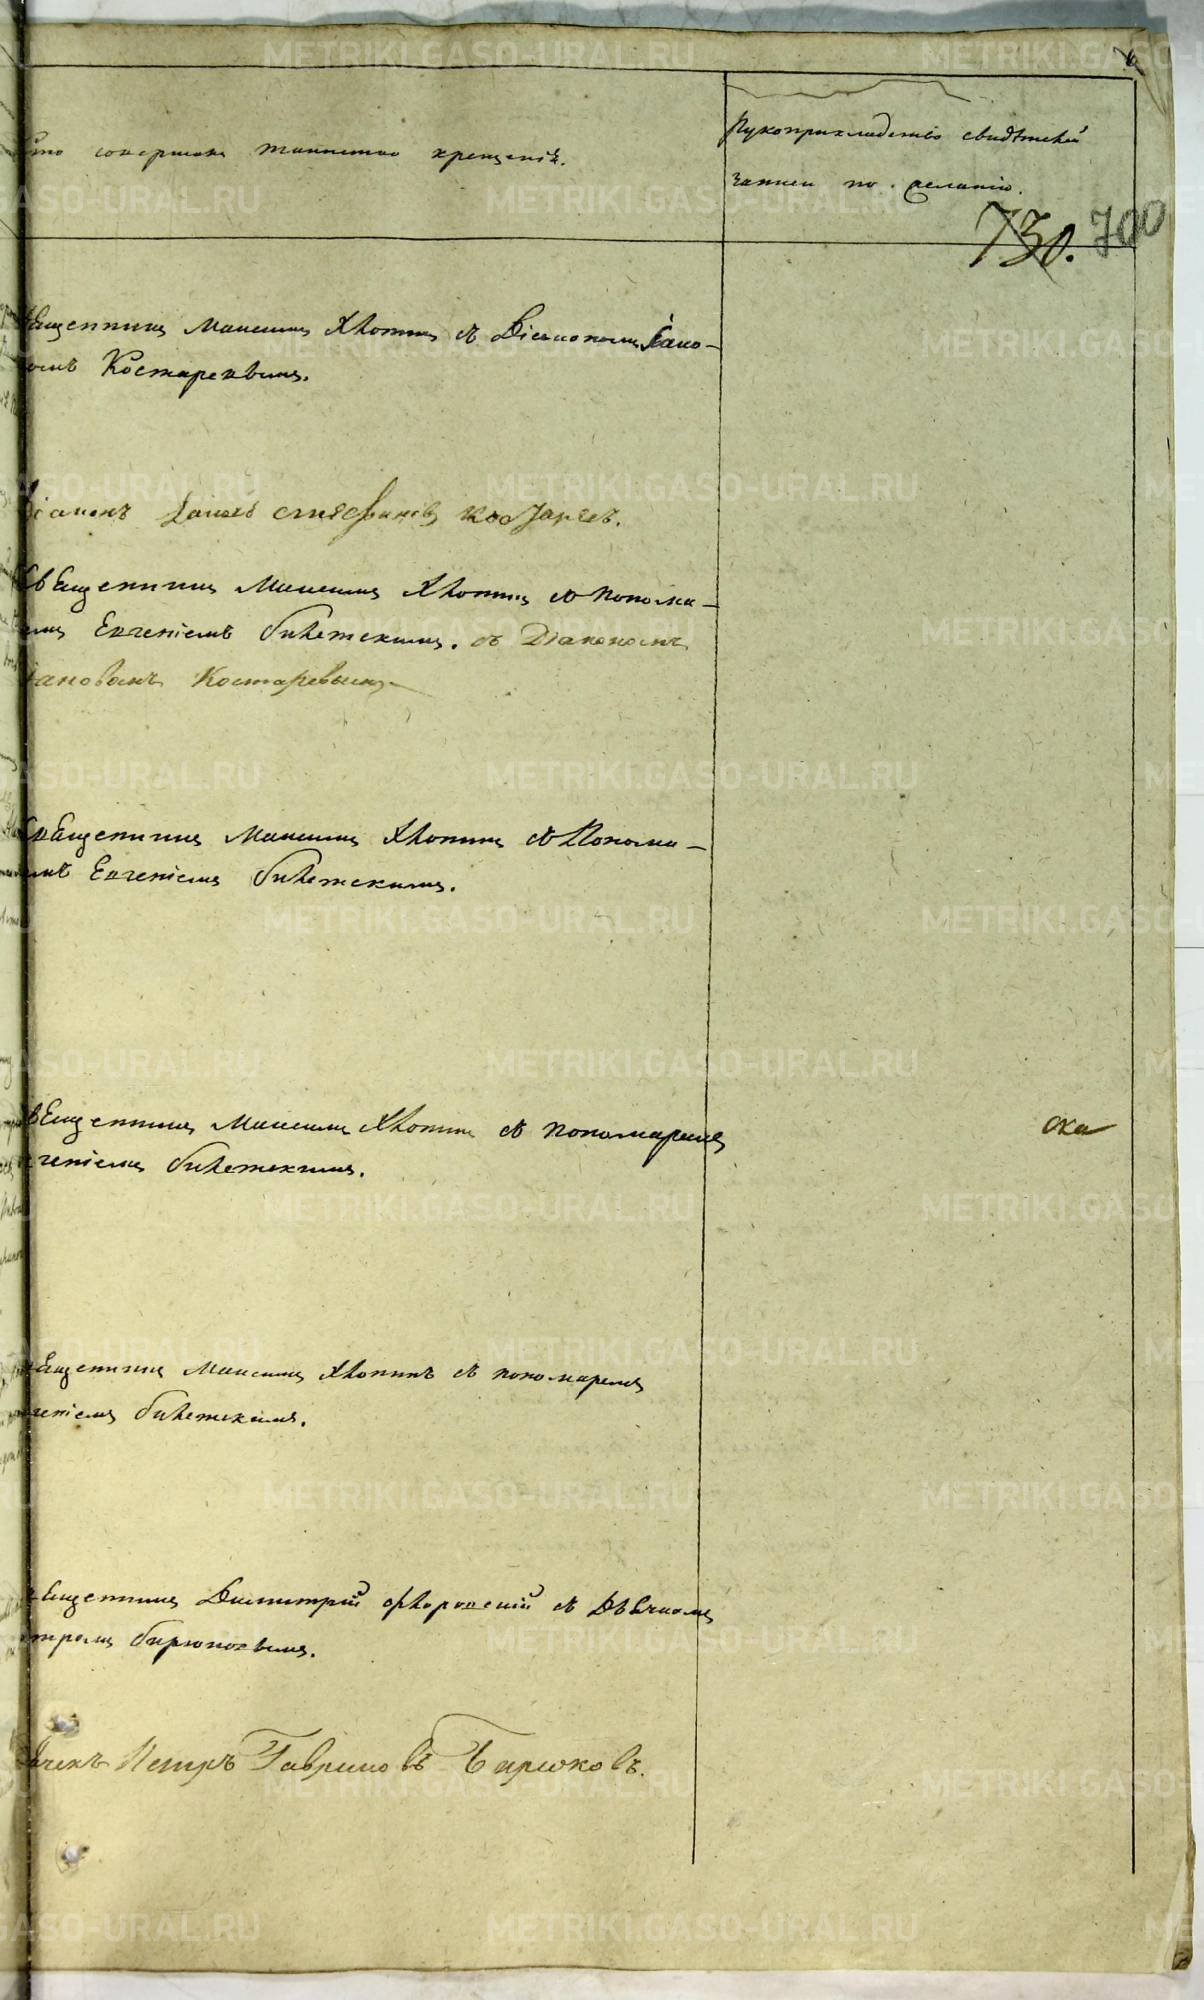 Кто совершалъ таинство крещенія.
Рукоприкладство свидѣтелей
записи по желанію.
730. 700
Священникъ Максимъ Хлопинъ съ Діакономъ Іако-
вомъ Костаревымъ.
Діаконъ Іаковъ Стефановъ Костаревъ.
Священникъ Максимъ Хлопинъ съ Понома-
емъ Евгеніемъ Билетскимъ. съ Діакономъ
Іаковомъ Костаревымъ
Священникъ Максимъ Хлопинъ съ Понома-
емъ Евгеніемъ Билетскимъ.
Священникъ Максимъ Хлопинъ съ пономаремъ
Евгеніемъ Билетскимъ.
ска
Священникъ Максимъ Хлопинъ съ пономаремъ
Евгеніемъ Билетскимъ.
Священникъ Димитрій Флоровскій съ Дьячкомъ
Петромъ Бирюковымъ.
Дьячекъ Петръ Гавриловъ Бирюковъ.
METRIKI.GASO-URAL.RU